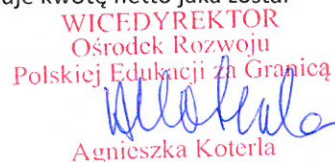 uje kwotę netto jaka zosta.
WICEDYREKTOR
Ośrodek Rozwoju
Polskiej Edukacji za Granicą
Agnieszka Koterla